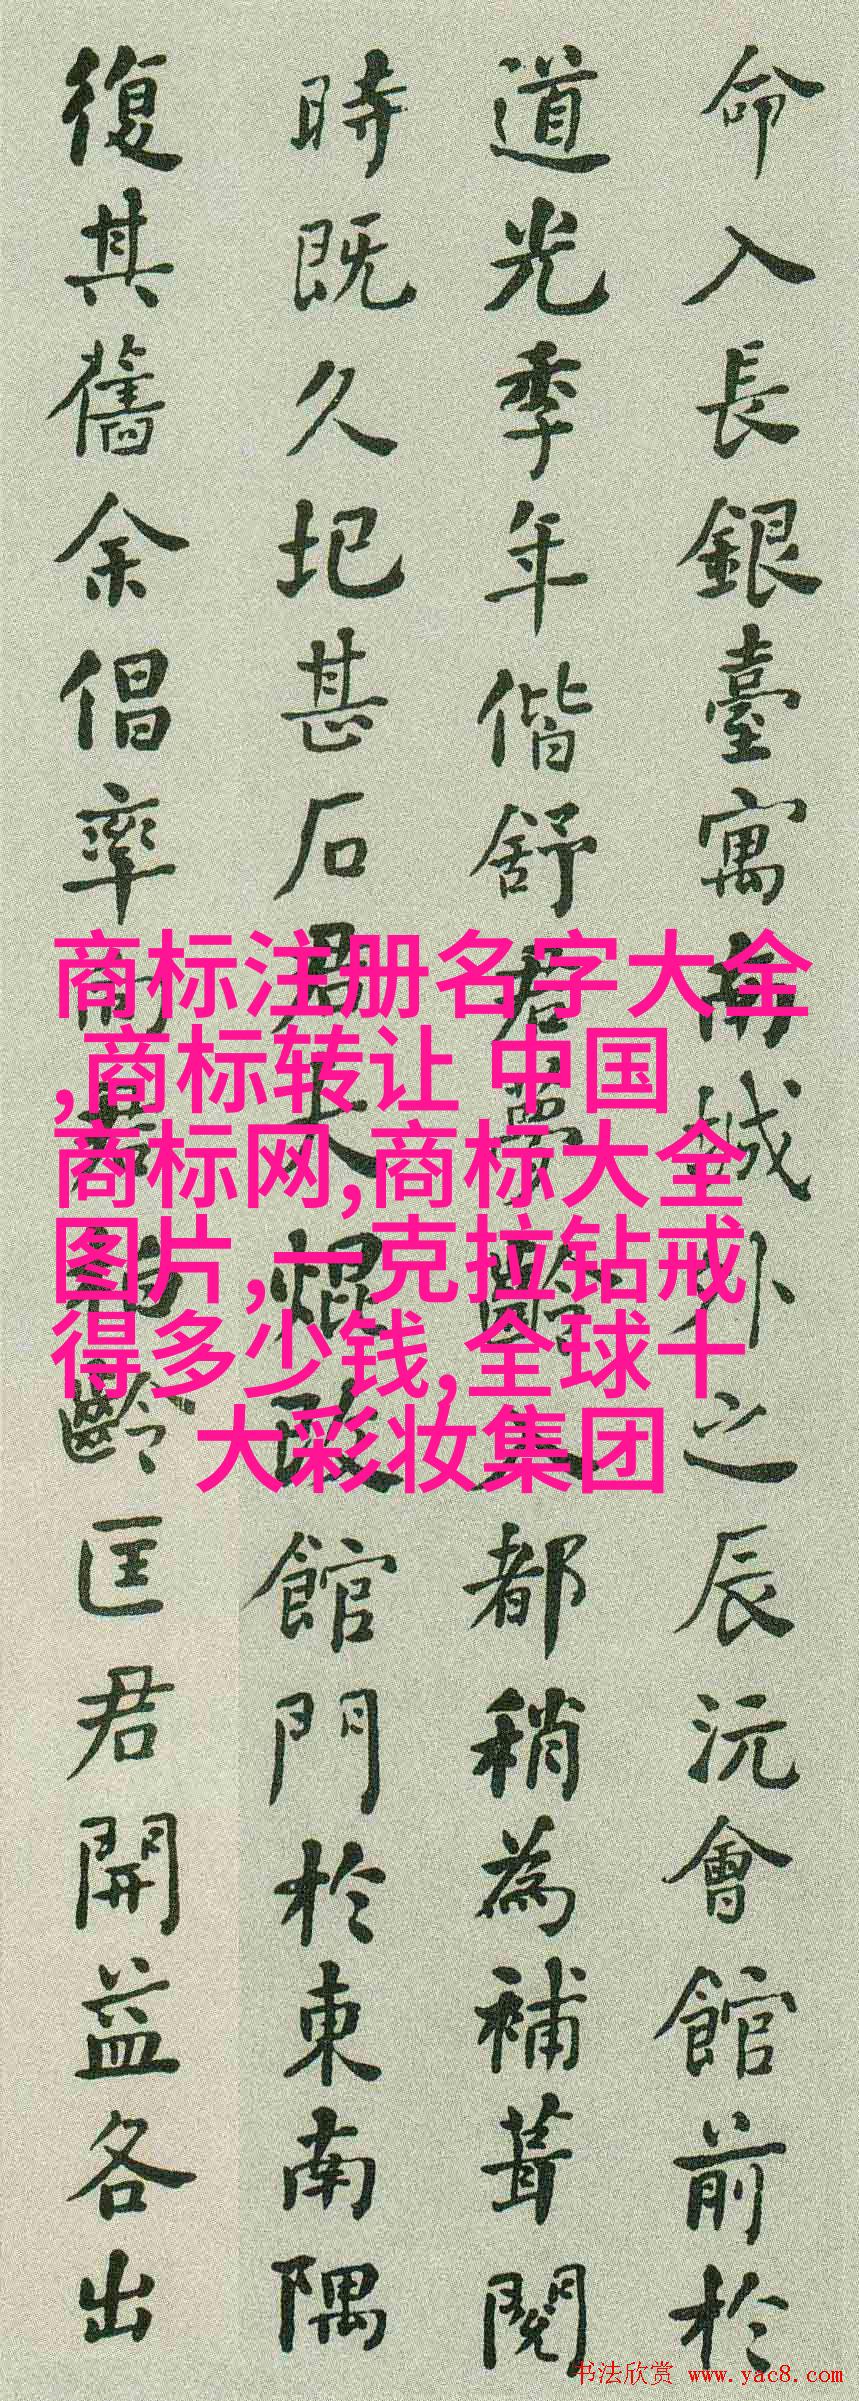 命入長銀臺寓南城外之辰沅會館前於
道光季年偕舒君夢齡入都稍為補葺閱
時既久圮甚石君大焜改館門於東南隅
復其舊余倡率而齡匡君開益各出
商标注册名字大全
,商标转让 中国
商标网,商标大全
图片,一克拉钻戒
得多少钱,全球十
大彩妆集团
书法欣赏 www.yac8.com